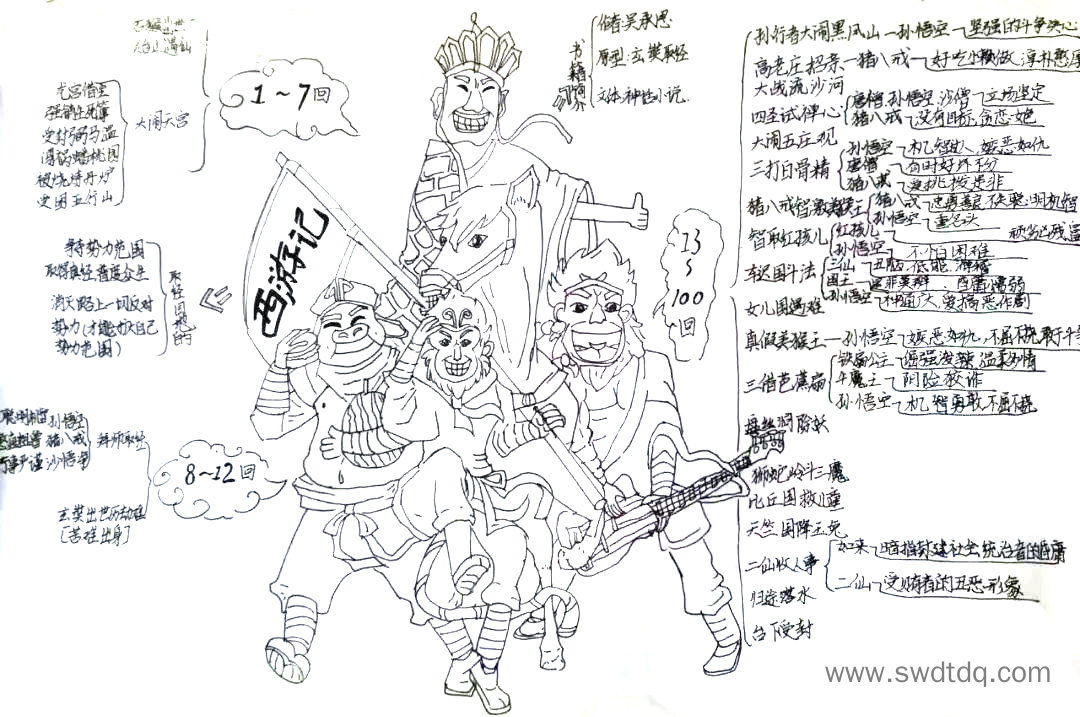 1～7回
大闹天宫
龙宫借宝
强销生死簿
受封弼马温
被烧炼丹炉
受困五行山
取经团想的
取得真经普度众生
消灭路上一切反对
势力(才能扩大自己
势力范围)
8～12回
拜师取经
孙悟空
猪八戒
沙悟净
玄奘出世历劫难
[苦难出身]
西游记
书籍简介
作者:吴承恩
原型:玄奘取经
文体:神性小说.
13～100回
孙行者大闹黑风山—孙悟空—坚强的斗争决心
高老庄招亲—猪八戒—好吃懒做、淳朴憨厚
大战流沙河
四圣试禅心
唐僧.孙悟空.沙僧—立场坚定
猪八戒—没有目标、贪恋女色
大闹五庄观
三打白骨精
孙悟空—机智过人、嫉恶如仇
唐僧—有时好坏不分
猪八戒—爱挑拨是非
猪八戒智激美猴王
猪八戒
孙悟空—重名头
智取红孩儿
红孩儿
孙悟空—不怕困难
车迟国斗法
三仙—丑陋、低能、滑稽
国王
孙悟空—神通广大、爱搞恶作剧
女儿国遇难
真假美猴王—孙悟空—嫉恶如仇、不屈不挠
三借芭蕉扇
铁扇公主—倔强泼辣、温柔多情
牛魔王—阴险狡诈
孙悟空—机智勇敢不屈不挠
狮驼岭斗三魔
比丘国救儿童
天竺国降玉兔
二仙收人事
如来—暗指封建社会统治者的昏庸
二仙—受贿者的丑恶形象
归途落水
台下受封
www.swdtdq.com